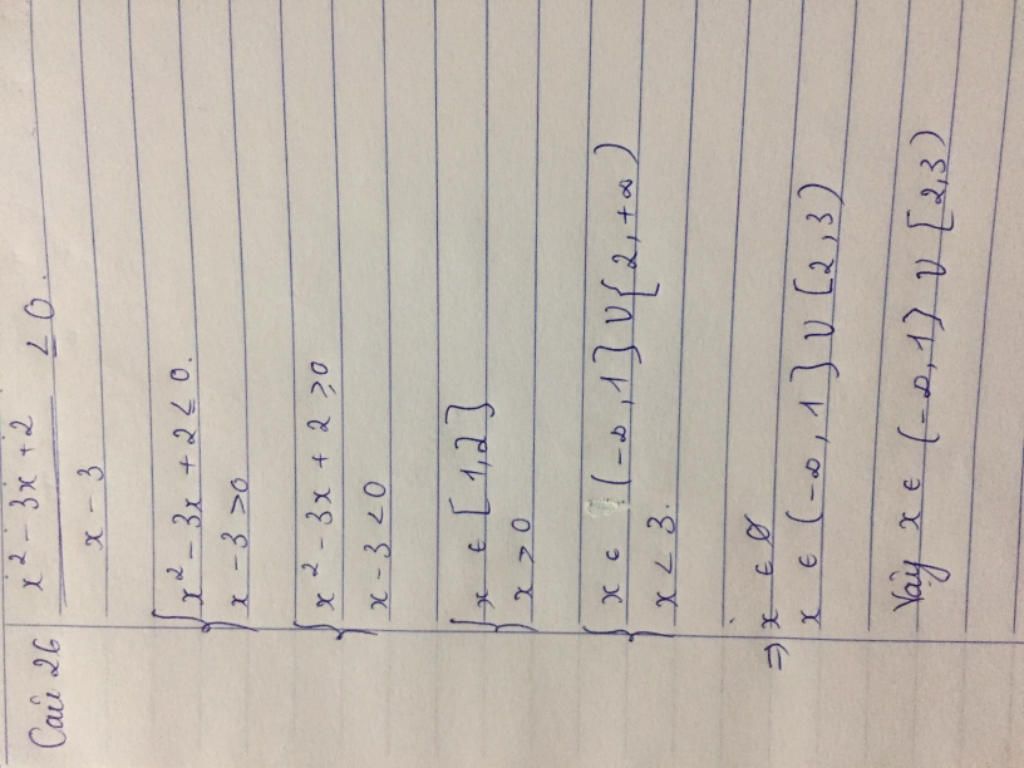 Câu 26
x² - 3x + 2 ≤ 0.
x - 3
x² - 3x + 2 ≤ 0.
x - 3 > 0
x² - 3x + 2 ≥ 0
x - 3 < 0
x ∈ [1,2]
x > 0
x ∈ (-∞, 1] ∪ [2, +∞)
x < 3.
⇒ x ∈ ∅
x ∈ (-∞, 1] ∪ [2, 3)
Vậy x ∈ (-∞, 1] ∪ [2,3)